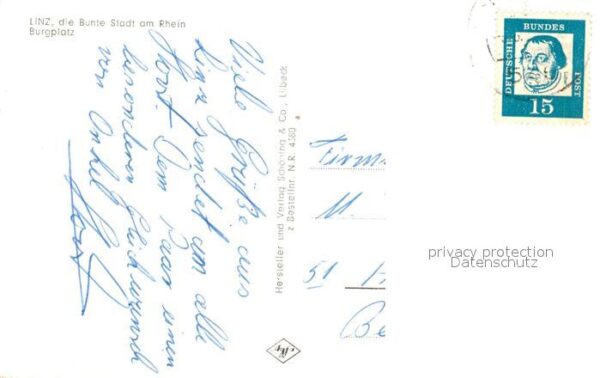 LINZ, die Bunte Stadt am Rhein
Burgplatz
Viele Grüße aus
Linz sendet an alle
Horst. Dem Paar einen
besonderen Glückwunsch
von Onkel
Horst
Hersteller und Verlag Schöning & Co., Lübeck
Bestellnr. N.R. 4380
DEUTSCHE BUNDES POST
15
Firma
M.
51
privacy protection
Datenschutz